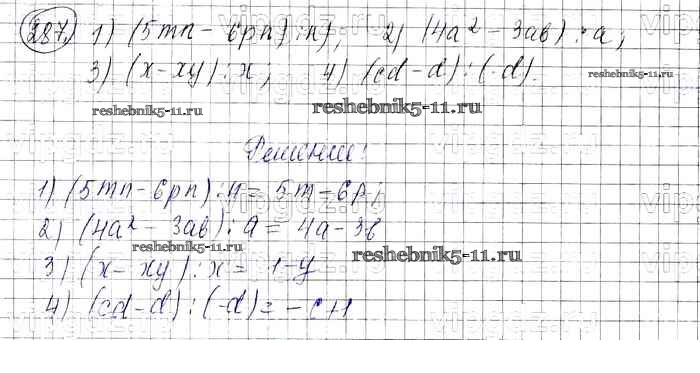 287. 1) (5mn - 6pn) : n); 2) (4a² - 3ab) : a;
3) (x - xy) : x; 4) (cd - d) : (-d).
reshebnik5-11.ru reshebnik5-11.ru
Решение:
1) (5mn - 6pn) : n = 5m - 6p;
2) (4a² - 3ab) : a = 4a - 3b
reshebnik5-11.ru reshebnik5-11.ru
3) (x - xy) : x = 1 - y
4) (cd - d) : (-d) = - c + 1
vipgdz.ru